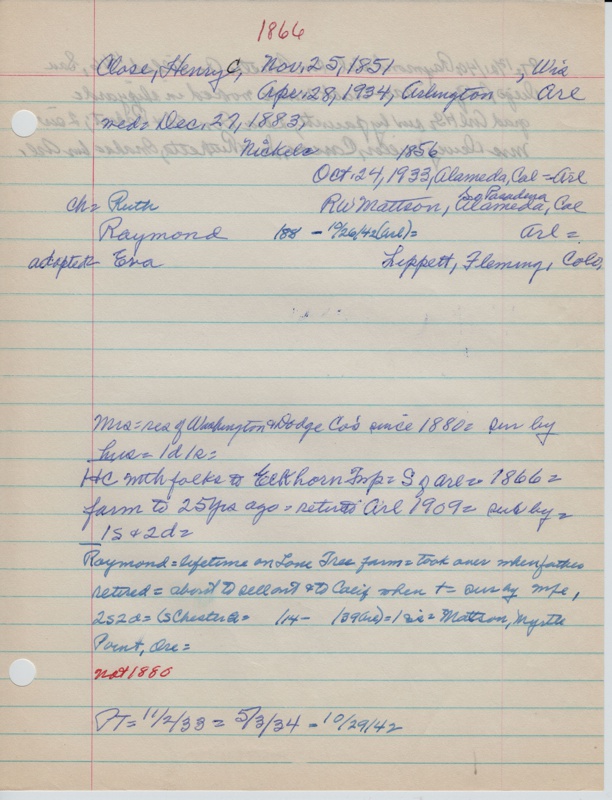 1866
Close, Henry C, Nov. 25, 1851 , Wis
Apr. 28, 1934, Arlington Arl
wed = Dec. 27, 1883,
Nickel = 1856
Oct. 24, 1933, Alameda, Cal = Arl
So Pasadena
ch = Ruth RW Mattson, Alameda, Cal
Raymond 188 - 10/26/42 (Arl) = Arl =
adopted = Eva Lippett, Fleming, Colo,
Mrs = res of Washington & Dodge Co's since 1880 = sur by
hus = 1d 1s =
HC with folks to Elkhorn Twp = S of Arl = 1866 =
farm to 25 yrs ago = return to Arl 1909 = sur by =
1s & 2d =
Raymond = lifetime on Lone Tree farm = took over when father
retired = about to sell out & to Calif when t = sur by wife,
2s 2d = (S Chester = 114 - 139 (Arl) = 1 sis = Mattson, Myrtle
Point, Ore =
not 1880
PT = 11/2/33 = 5/3/34 - 10/29/42